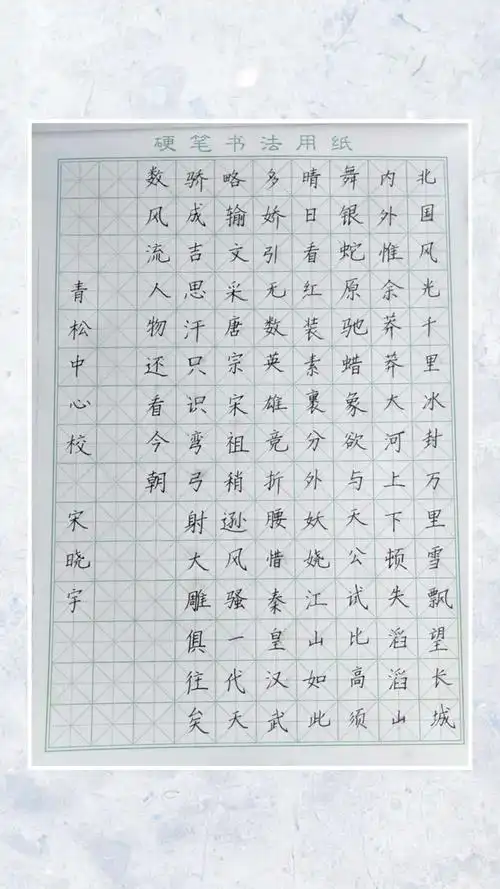 硬笔书法用纸
北国风光千里冰封万里雪飘望长城
内外惟余莽莽大河上下顿失滔滔山
舞银蛇原驰蜡象欲与天公试比高须
晴日看红装素裹分外妖娆江山如此
多娇引无数英雄竞折腰惜秦皇汉武
略输文采唐宗宋祖稍逊风骚一代天
骄成吉思汗只识弯弓射大雕俱往矣
数风流人物还看今朝
青松中心校 宋晓宇